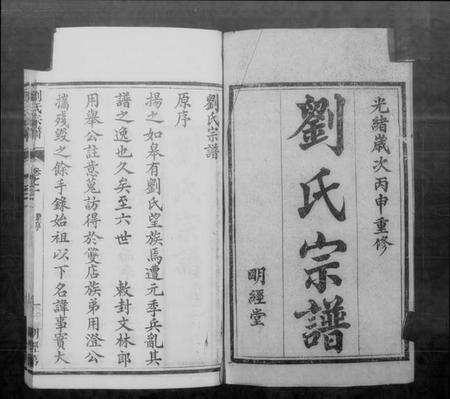 光緒歲次丙申重修
劉氏宗譜
明經堂
劉氏宗譜
原序
揚之如皋有劉氏望族馬遭元季兵亂其
譜之逸也久矣至六世 敕封文林郎
用舉公註意蒐訪得於雙店族弟用澄公
攜殘毀之餘手錄始祖以下名諱事實大